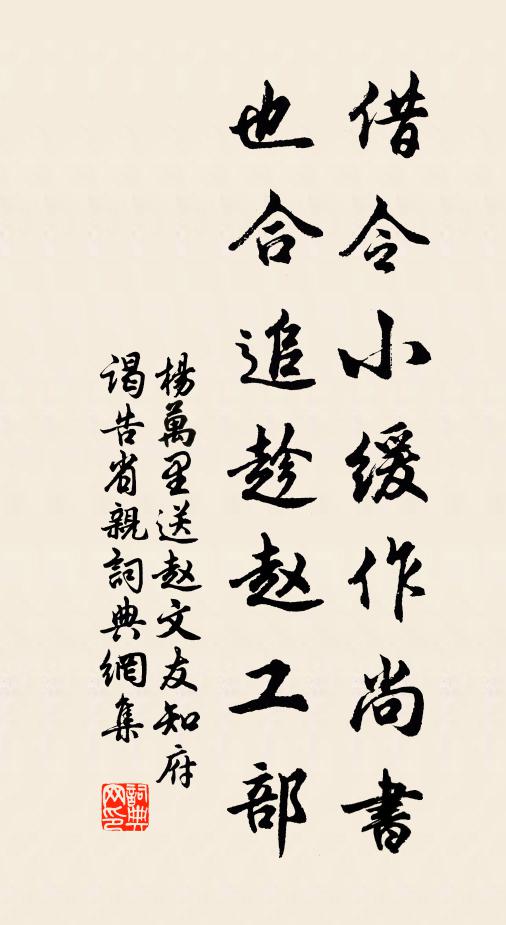 借令小缓作尚書
也合追趁赵工部
楊萬里送赵文友知府
谒告省親詞典網集
詞典
网印